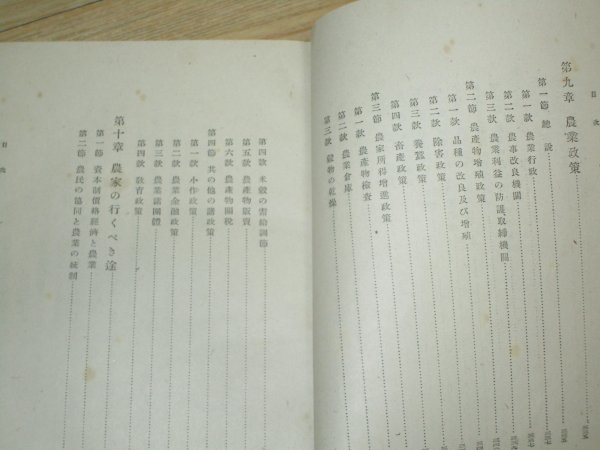 目次
第九章 農業政策
第一節 總說
第一款 農業行政
第二款 農事改良機關
第三款 農業利益の防護取締機關
第二節 農產物增殖政策
第一款 品種の改良及び增殖
第二款 除害政策
第三款 養蠶政策
第四款 畜產政策
第三節 農家所得增進政策
第一款 農產物檢查
第二款 農業倉庫
第三款 穀物の乾燥
第四款 米穀の需給調節
第五款 農產物販賣
第六款 農產物關稅
第四節 其の他の諸政策
第一款 小作政策
第二款 農業金融政策
第三款 農業諸團體
第四款 敎育政策
第十章 農家の行くべき途
第一節 資本制價格經濟と農業
第二節 農民の協同と農業の統制
目次